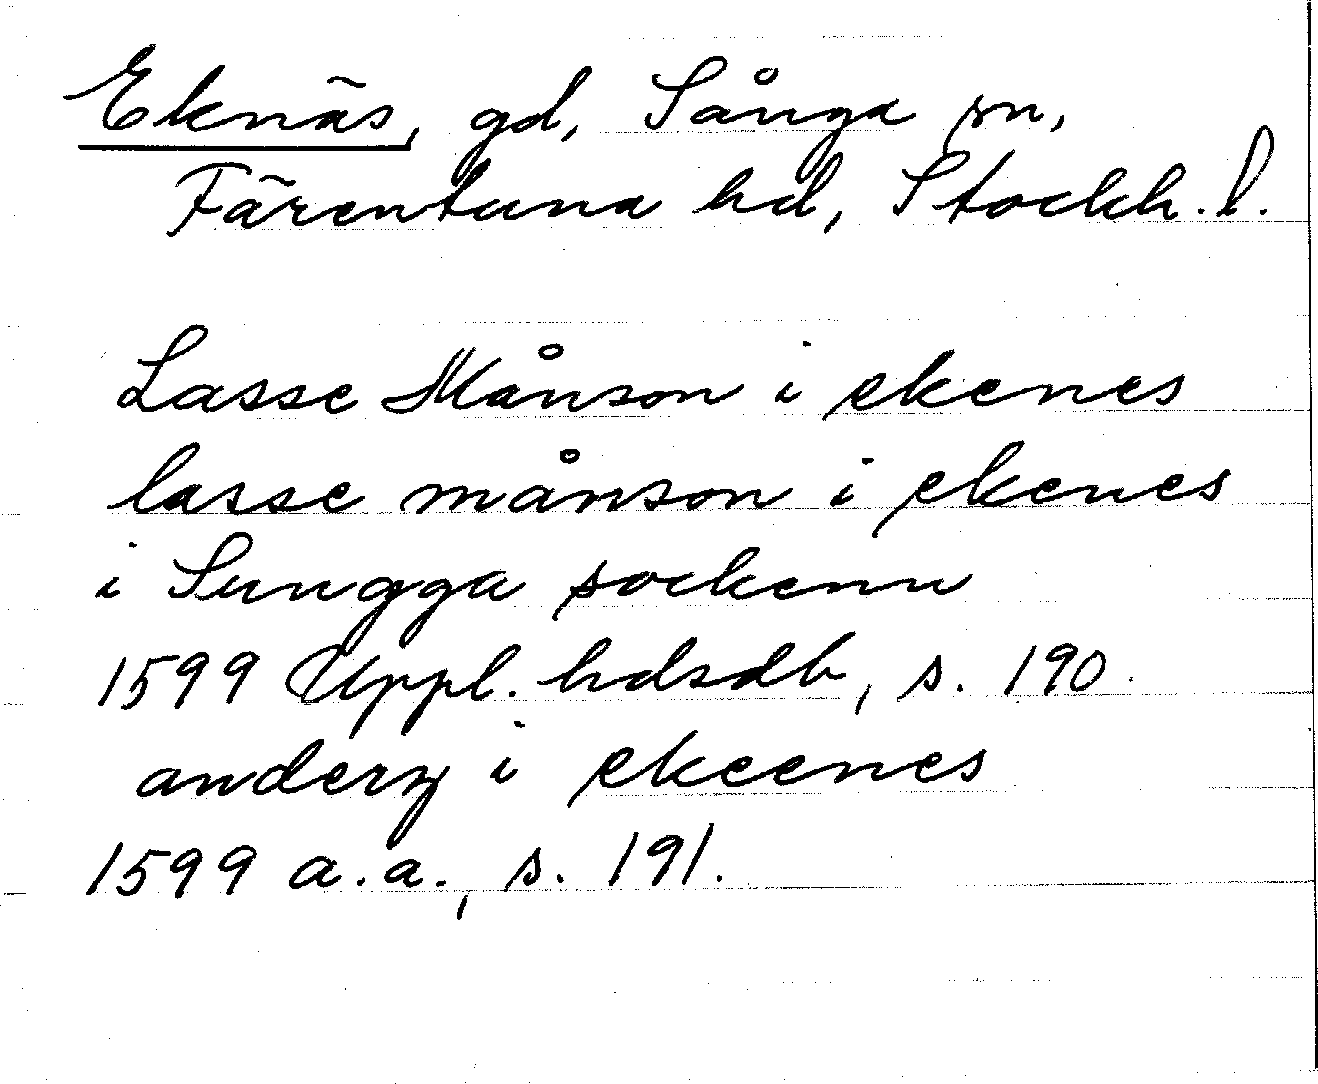 Eknäs, gd, Sånga sn,
Färentuna hd, Stockh. l.
Lasse Månson i ekenes
lasse månson i ekenes
i Sungga sockenn
1599 Uppl. hdsdb, s. 190.
anderz i ekeenes
1599 a.a., s. 191.